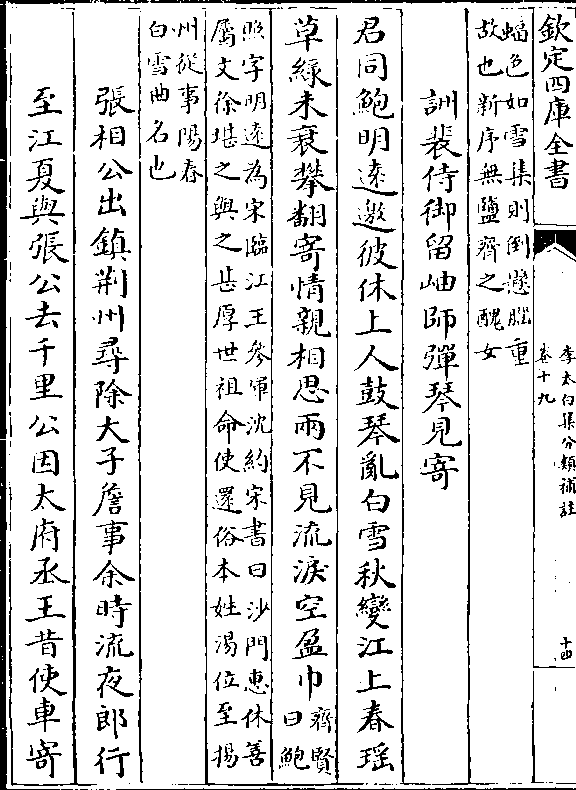 欽定四庫全書
李太白集分類補註
卷十九
十四
蝠色如雪集則倒懸腦重
故也新序無鹽齊之醜女
詶裴侍御留岫師彈琴見寄
君同鮑明遠邀彼休上人鼓琴亂白雪秋變江上春瑤
草緑未衰攀翻寄情親相思兩不見流淚空盈巾
齊賢
曰鮑
照字明遠為宋臨江王參軍沈約宋書曰沙門惠休善
屬文徐堪之與之甚厚世祖命使還俗本姓湯位至揚
州從事陽春
白雪曲名也
張相公出鎮荆州尋除大子詹事余時流夜郎行
至江夏與張公去千里公因太府丞王昔使車寄